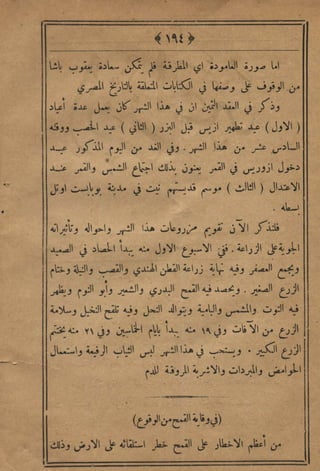 ﴿ ١٩٤ ﴾
اما صورة العامودة اي المطرقة فلم يتمكن سعادة يعقوب باشا
من الوقوف على وصفها في الكتابات المتعلقة بالتاريخ المصري
وذكر في العقد الثمين ان في هذا الشهر كان يعمل عدة أعياد
( الاول ) عيد تطهير ازيس قبل البزر ( الثاني ) عيد الخصب ووقته
السادس عشر من هذا الشهر . وفي الغد من اليوم المذكور عيد
دخول ازوريس في القمر يعنون بذلك اجتماع الشمس والقمر عند
الاعتدال ( الثالث ) موسم قديستهم نيت في مدينة بوباست اوتل
بسطه .
فلنذكر الآن تقويم مزروعات هذا الشهر واحواله وتأثيراته
الجوية على الزراعة . ففي الاسبوع الاول منه يبدأ الحصاد في الصعيد
ويجمع العصفر وفيه نهاية زراعة القطن الهندي والقصب والنيلة وختام
الزرع الصغير . ويحصد فيه القمح البدري والشعير وأبو النوم ويظهر
فيه التوت والمشمس والبامية ويتوالد النحل وفيه تلقح النخيل وسلامة
الزرع من الآفات وفي ١٩ منه يبدأ بايام الخماسين وفي ٢١ منه يختم
الزرع الكبير . ويستحب في هذا الشهر لبس الثياب الرفيعة واستعمال
الحوامض والمبردات والاشربة المروقة للدم
(في وقاية القمح من الوقوع)
من أعظم الاخطار على القمح خطر استلقائه على الارض وذلك